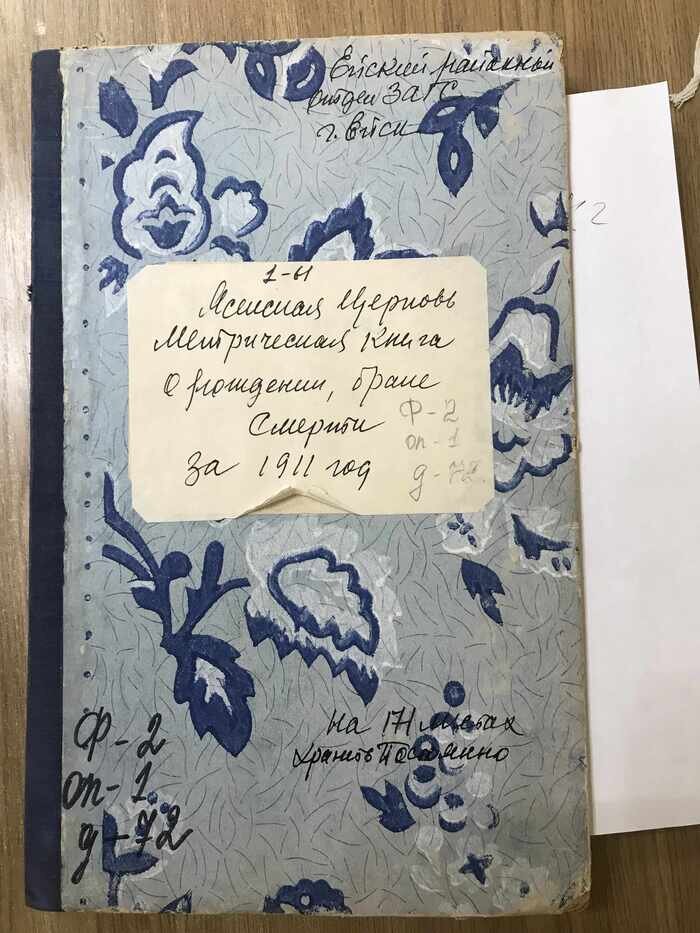 Ейский районный
отдел ЗАГС
г. Ейск
1-ы
Ясенская Церковь
Метрическая книга
о рождении, браке
смерти
за 1911 год
Ф-2
оп-1
д-72
На 171 листах
хранить Постоянно
Ф-2
оп-1.
д-72